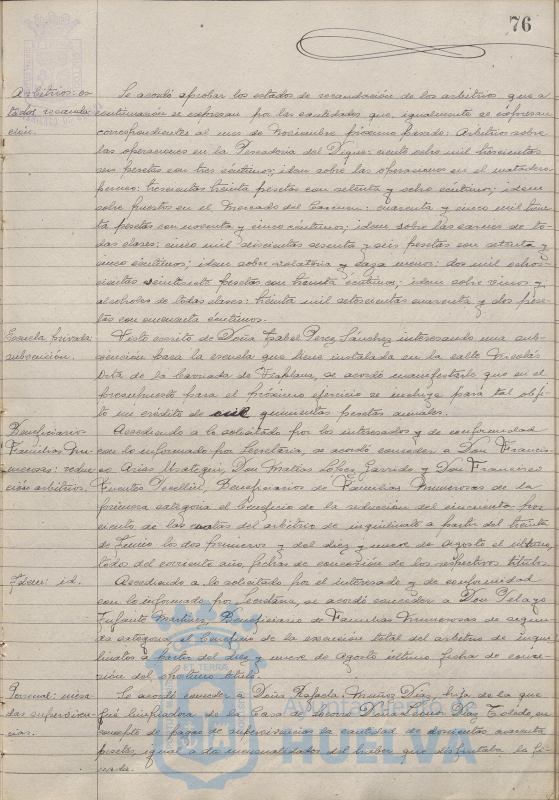 76
Arbitrios: es-
tados recauda-
ción.
Se acordó aprobar los estados de recaudación de los arbitrios que a
continuación se expresan por las cantidades que igualmente se expresan
correspondientes al mes de Noviembre próximo pasado: Arbitrios sobre
las operaciones en la Pescadería del Dique: ciento ocho mil trescientas
seis pesetas con tres céntimos; idem sobre las operaciones en el matadero
porcino: trescientas treinta pesetas con setenta y ocho céntimos; idem
sobre puestos en el Mercado del Carmen: cuarenta y cinco mil trein-
ta pesetas con noventa y cinco céntimos; idem sobre las carnes de to-
das clases: cinco mil seiscientas sesenta y seis pesetas con setenta y
cinco céntimos; idem sobre volatería y caza menor: dos mil ocho-
cientas veintisiete pesetas con treinta céntimos; idem sobre vinos y
alcoholes de todas clases: treinta mil setecientas cuarenta y dos pese-
tas con cincuenta céntimos.
Escuela privada:
subvención.
Visto escrito de Doña Isabel Perez Sánchez interesando una sub-
vención para la escuela que tiene instalada en la calle Nicolás
de la barriada de Viaplana, se acordó manifestarle que en el
presupuesto para el próximo ejercicio se incluye para tal obje-
to un crédito de quinientas pesetas anuales.
Beneficiarios
Familias Nu-
merosas: reduc-
ción arbitrios.
Accediendo a lo solicitado por los interesados y de conformidad
con lo informado por Secretaría, se acordó conceder a Don Francis-
co Arias Don Matías López Garrido y Don Francisco
Fuentes Beneficiarios de Familias Numerosas de la
primera categoría el Beneficio de la reducción del cincuenta por
ciento de las cuotas del arbitrio de inquilinato a partir del treinta
de Junio los dos primeros y del diez y nueve de Agosto el último,
todos del corriente año, fechas de concesión de los respectivos títulos.
Idem: id.
Accediendo a lo solicitado por el interesado y de conformidad
con lo informado por Secretaría, se acordó conceder a Don Pelayo
Infante Martínez, Beneficiario de Familias Numerosas de segun-
da categoría, el beneficio de la exención total del arbitrio de inqui-
linatos a partir del diez y nueve de Agosto último fecha de conce-
sión del oportuno título.
Personal: mesa-
das superviven-
cias.
Se acordó conceder a Doña Rafaela Muñoz Díaz, hija de la que
fué limpiadora de la Casa de Socorro Doña Díaz Toledo, en
concepto de pagas de supervivencia la cantidad de doscientas cuarenta
pesetas, igual a dos mensualidades del haber que disfrutaba la fi-
nada.
Ayuntamiento de
HUELVA